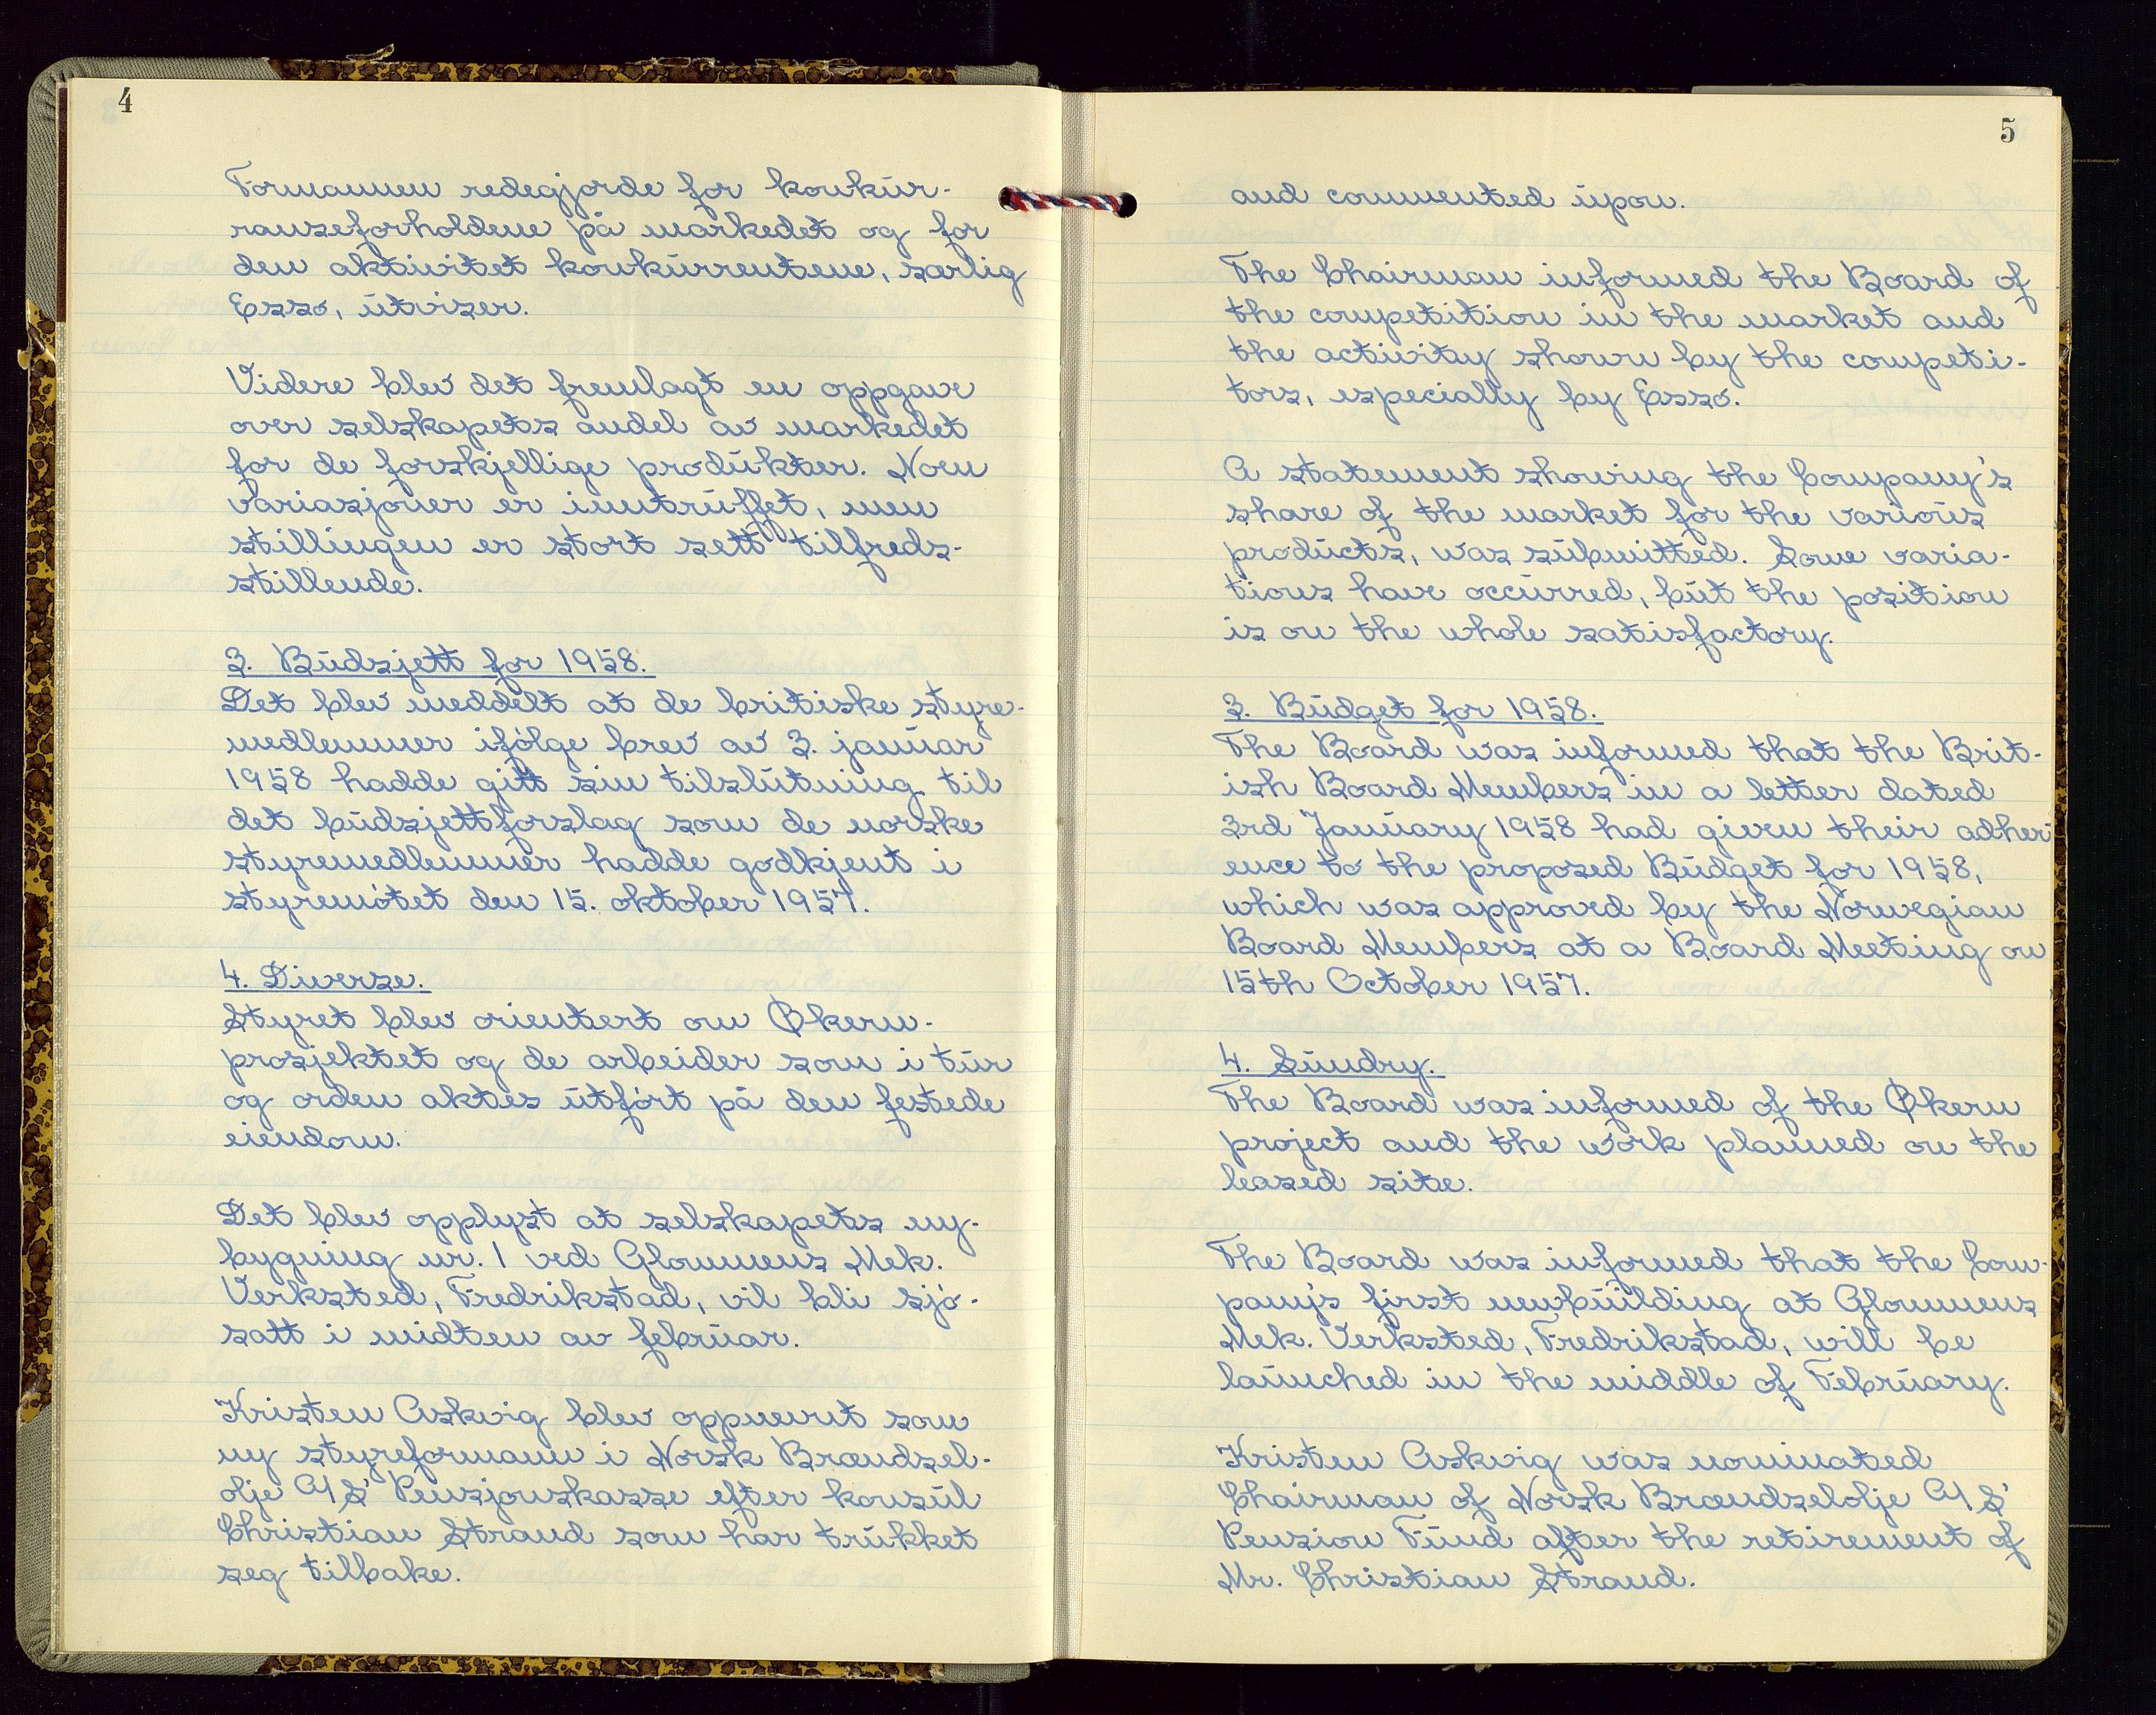 4
Formannen redegjorde for konkur-
ranseforholdene på markedet og for
den aktivitet konkurrentene, særlig
Esso, utviser.
Videre blev det fremlagt en oppgave
over selskapets andel av markedet
for de forskjellige produkter. Noen
variasjoner er inntruffet, men
stillingen er stort sett tilfreds-
stillende.
3. Budsjett for 1958.
Det blev meddelt at de britiske styre-
medlemmer ifølge brev av 3. januar
1958 hadde gitt sin tilslutning til
det budsjettforslag som de norske
styremedlemmer hadde godkjent i
styremøtet den 15. oktober 1957.
4. Diverse.
Styret blev orientert om Økern-
prosjektet og de arbeider som i tur
og orden aktes utført på den festede
eiendom.
Det blev opplyst at selskapets ny-
bygning nr. 1 ved Glommens Mek.
Verksted, Fredrikstad, vil bli sjø-
satt i midten av februar.
Kristen Askvig blev oppnevnt som
ny styreformann i Norsk Brændsel-
olje A/S' Pensjonskasse efter konsul
Christian Strand som har trukket
seg tilbake.
5
and commented upon.
The Chairman informed the Board of
the competition in the market and
the activity shown by the competi-
tors, especially by Esso.
A statement showing the Company's
share of the market for the various
products, was submitted. Some varia-
tions have occurred, but the position
is on the whole satisfactory.
3. Budget for 1958.
The Board was informed that the Brit-
ish Board Members in a letter dated
3rd January 1958 had given their adher-
ence to the proposed Budget for 1958,
which was approved by the Norwegian
Board Members at a Board Meeting on
15th October 1957.
4. Sundry.
The Board was informed of the Økern
project and the work planned on the
leased site.
The Board was informed that the Com-
pany's first newbuilding at Glommens
Mek. Verksted, Fredrikstad, will be
launched in the middle of February.
Kristen Askvig was nominated
Chairman of Norsk Brændselolje A/S'
Pension Fund after the retirement of
Mr. Christian Strand.